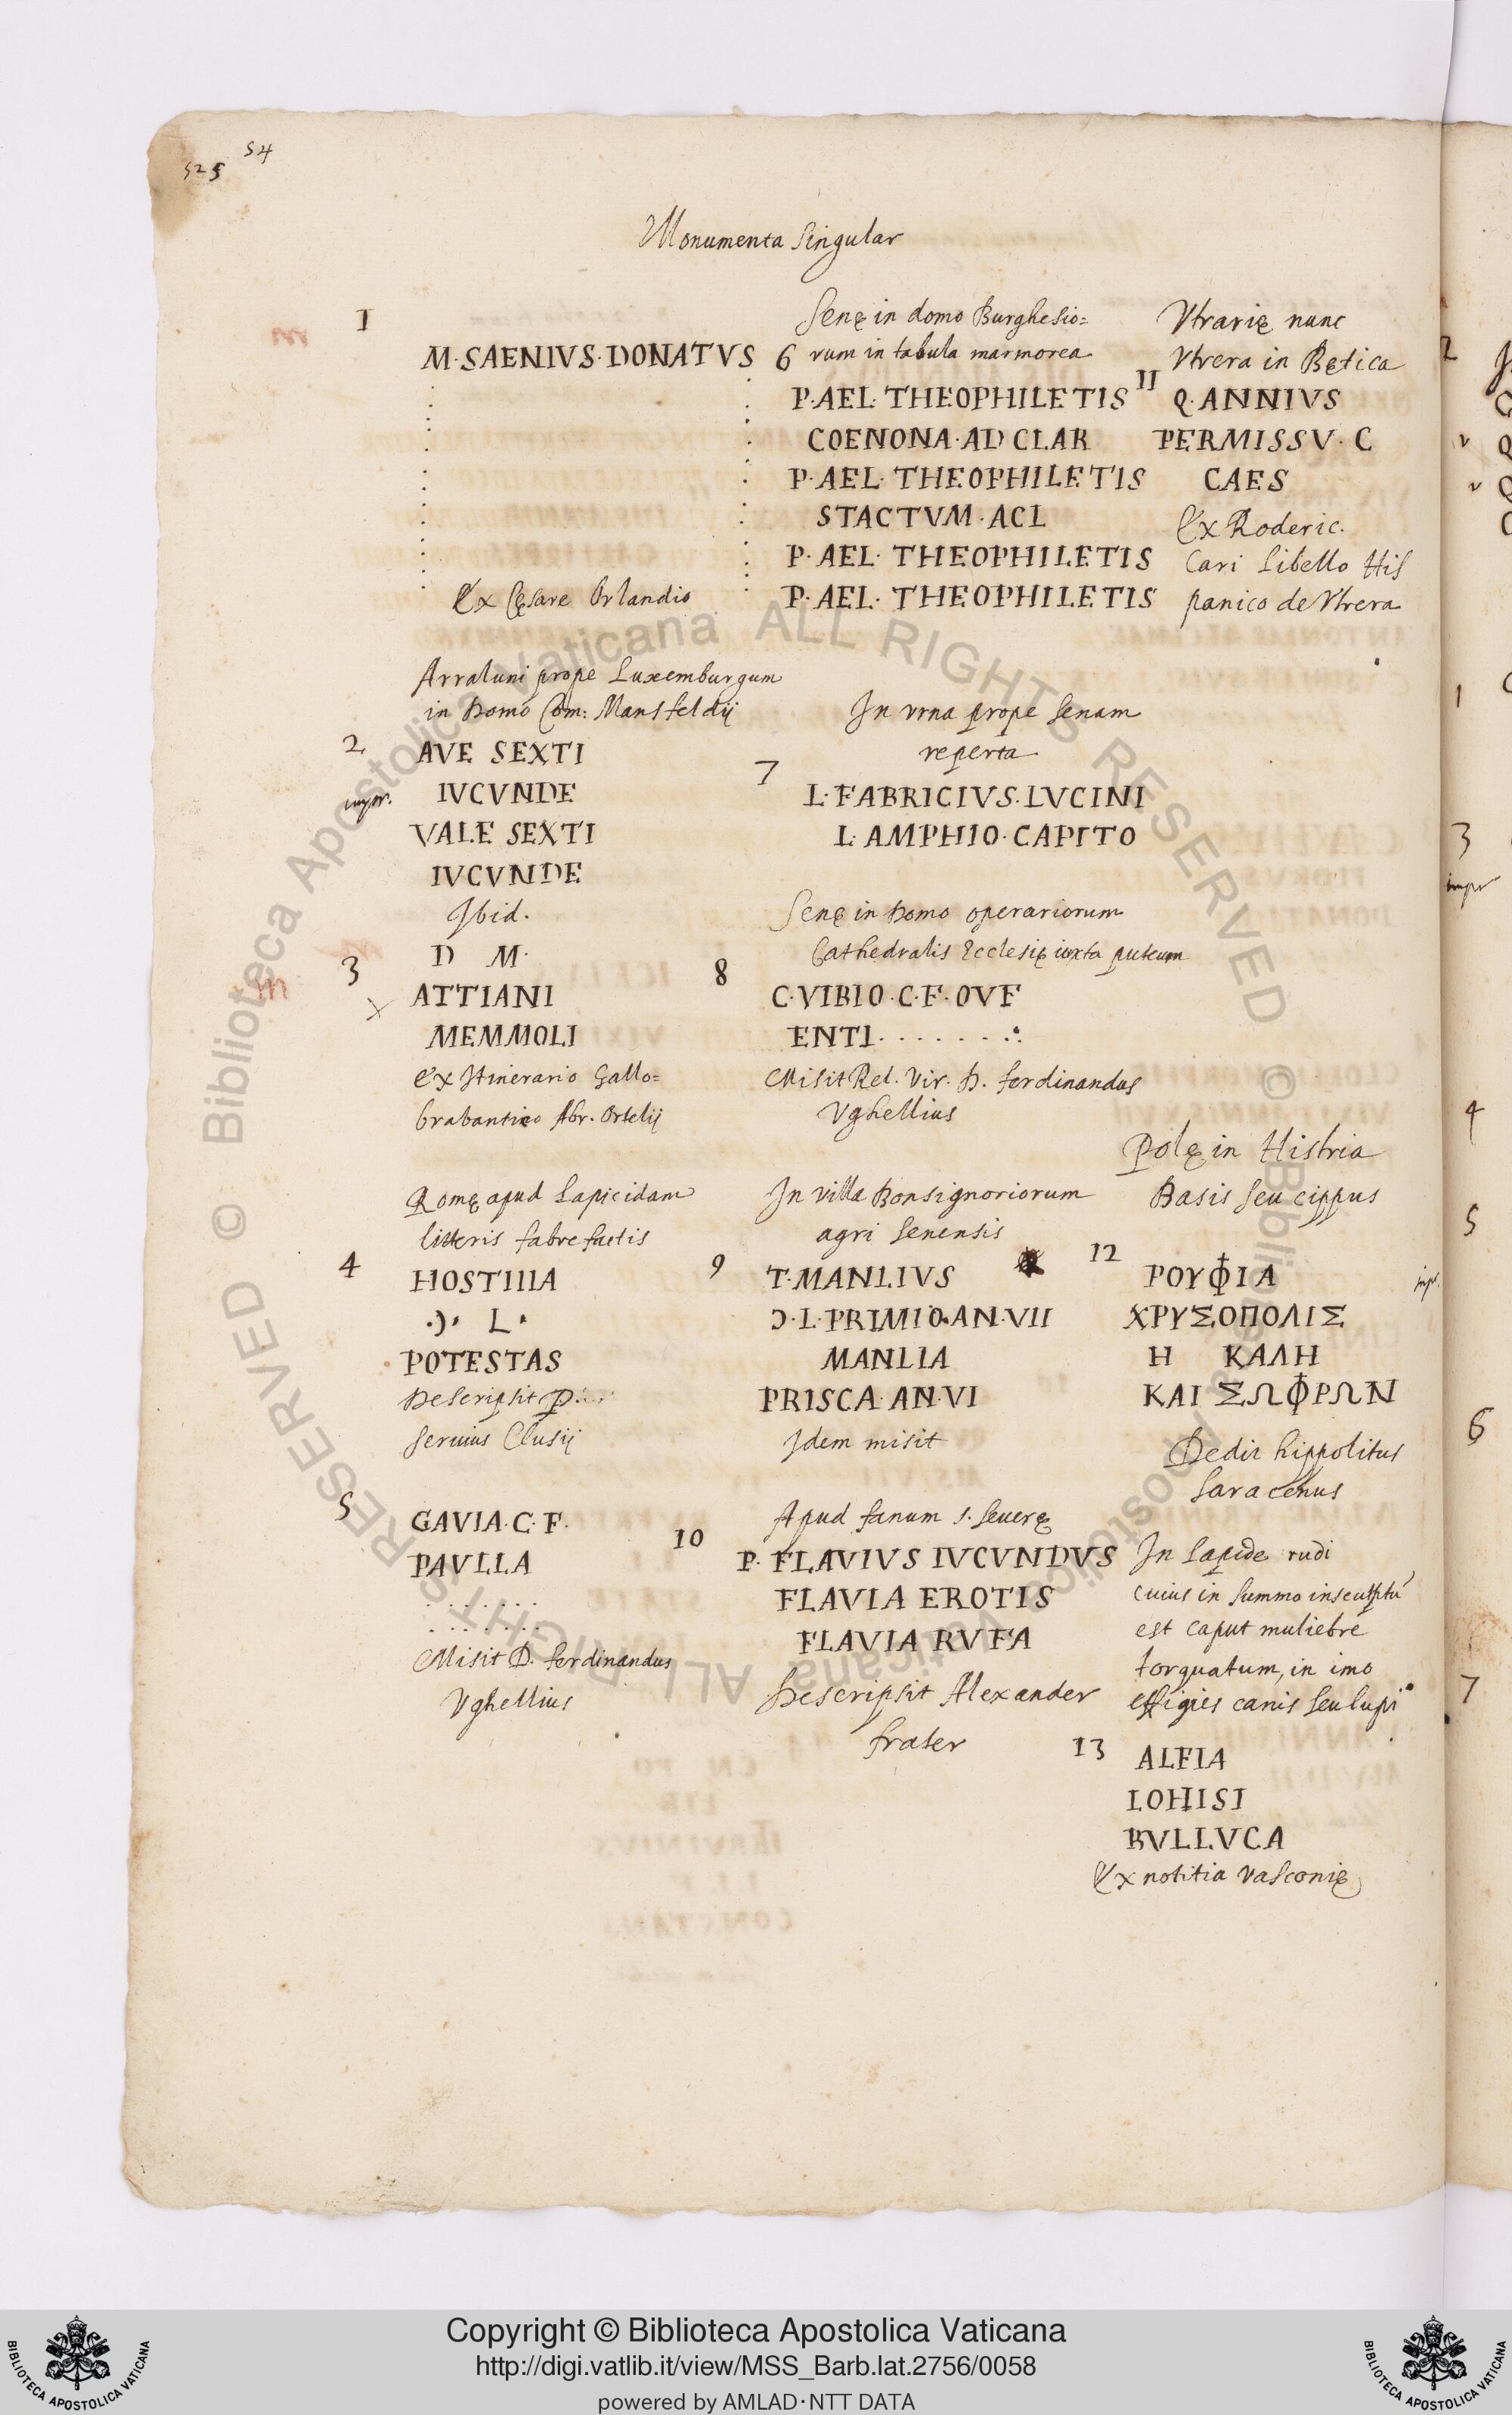 54
525
Monumenta Singular
1
M·SAENIVS·DONATVS
Ex Cęsare Orlandio
Arraluni prope Luxemburgum
in domo Com: Mansfeldij
2
AVE SEXTI
impr.
IVCVNDE
VALE SEXTI
IVCVNDE
Ibid.
D M·
3
ATTIANI
MEMMOLI
Ex Itinerario Gallo=
brabantico Abr. Ortelij
Romę apud Lapicidam
litteris fabrefactis
4
HOSTIIIA
·Ɔ· L·
POTESTAS
Descripsit P....
Seruius Clusij
5
GAVIA·C·F·
PAVLLA
. . . . . . .
. . . . . . .
Misit D. Ferdinandus
Vghellius
Senę in domo Burghesio=
6 rum in tabula marmorea
P·AEL·THEOPHILETIS
COENONA·AD CLAR
P·AEL·THEOPHILETIS
STACTVM·ACL
P·AEL·THEOPHILETIS
P·AEL·THEOPHILETIS
In vrna prope Senam
reperta
7
L·FABRICIVS·LVCINI
L·AMPHIO·CAPITO
Senę in domo operariorum
Cathedralis Ecclesię iuxta puteum
8
C·VIBIO·C·F·OVF
ENTI. . . . . . .
Misit Rel. Vir. D. Ferdinandus
Vghellius
In villa Bonsignoriorum
agri Senensis
9
T·MANLIVS
Ɔ·L·PRIMIO·AN·VII
MANLIA
PRISCA·AN·VI
Idem misit
Apud fanum S. Seuerę
10
P. FLAVIVS IVCVNDVS
FLAVIA EROTIS
FLAVIA RVFA
Descripsit Alexander
frater
Vtrarię nunc
Vtrera in Bętica
11
Q·ANNIVS
PERMISSV·C
CAES
Ex Roderic.
Cari Libello His
panico de Vtrera
Polę in Histria
Basis seu cippus
12
ΡΟΥΦΙΑ
ΧΡΥΣΟΠΟΛΙΣ
Η ΚΑΛΗ
ΚΑΙ ΣΩΦΡΩΝ
Dedit hippolitus
Saracenus
In Lapide rudi
cuius in summo insculptũ
est caput muliebre
torquatum, in imo
effigies canis seu lupi
13
ALFIA
LOHISI
BVLLVCA
Ex notitia Vasconię
2
1
3
impr
4
5
impr.
6
7
© Biblioteca Apostolica Vaticana ALL RIGHTS RESERVED © Biblioteca Apostolica Vaticana ALL RIGHTS RESERVED
BIBLIOTECA APOSTOLICA VATICANA
Copyright © Biblioteca Apostolica Vaticana
http://digi.vatlib.it/view/MSS_Barb.lat.2756/0058
powered by AMLAD·NTT DATA
BIBLIOTECA APOSTOLICA VATICANA